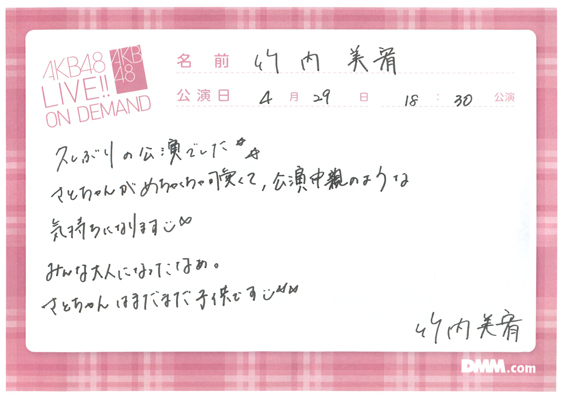 AKB48
LIVE!!
ON DEMAND
AKB
48
名前 竹内美宥
公演日 4月29日 18:30 公演
久しぶりの公演でした
さとちゃんがめちゃくちゃ可愛くて,公演中親のような
気持ちになります
みんな大人になったなぁ。
さとちゃんはまだまだ子供です
竹内美宥
DMM.com